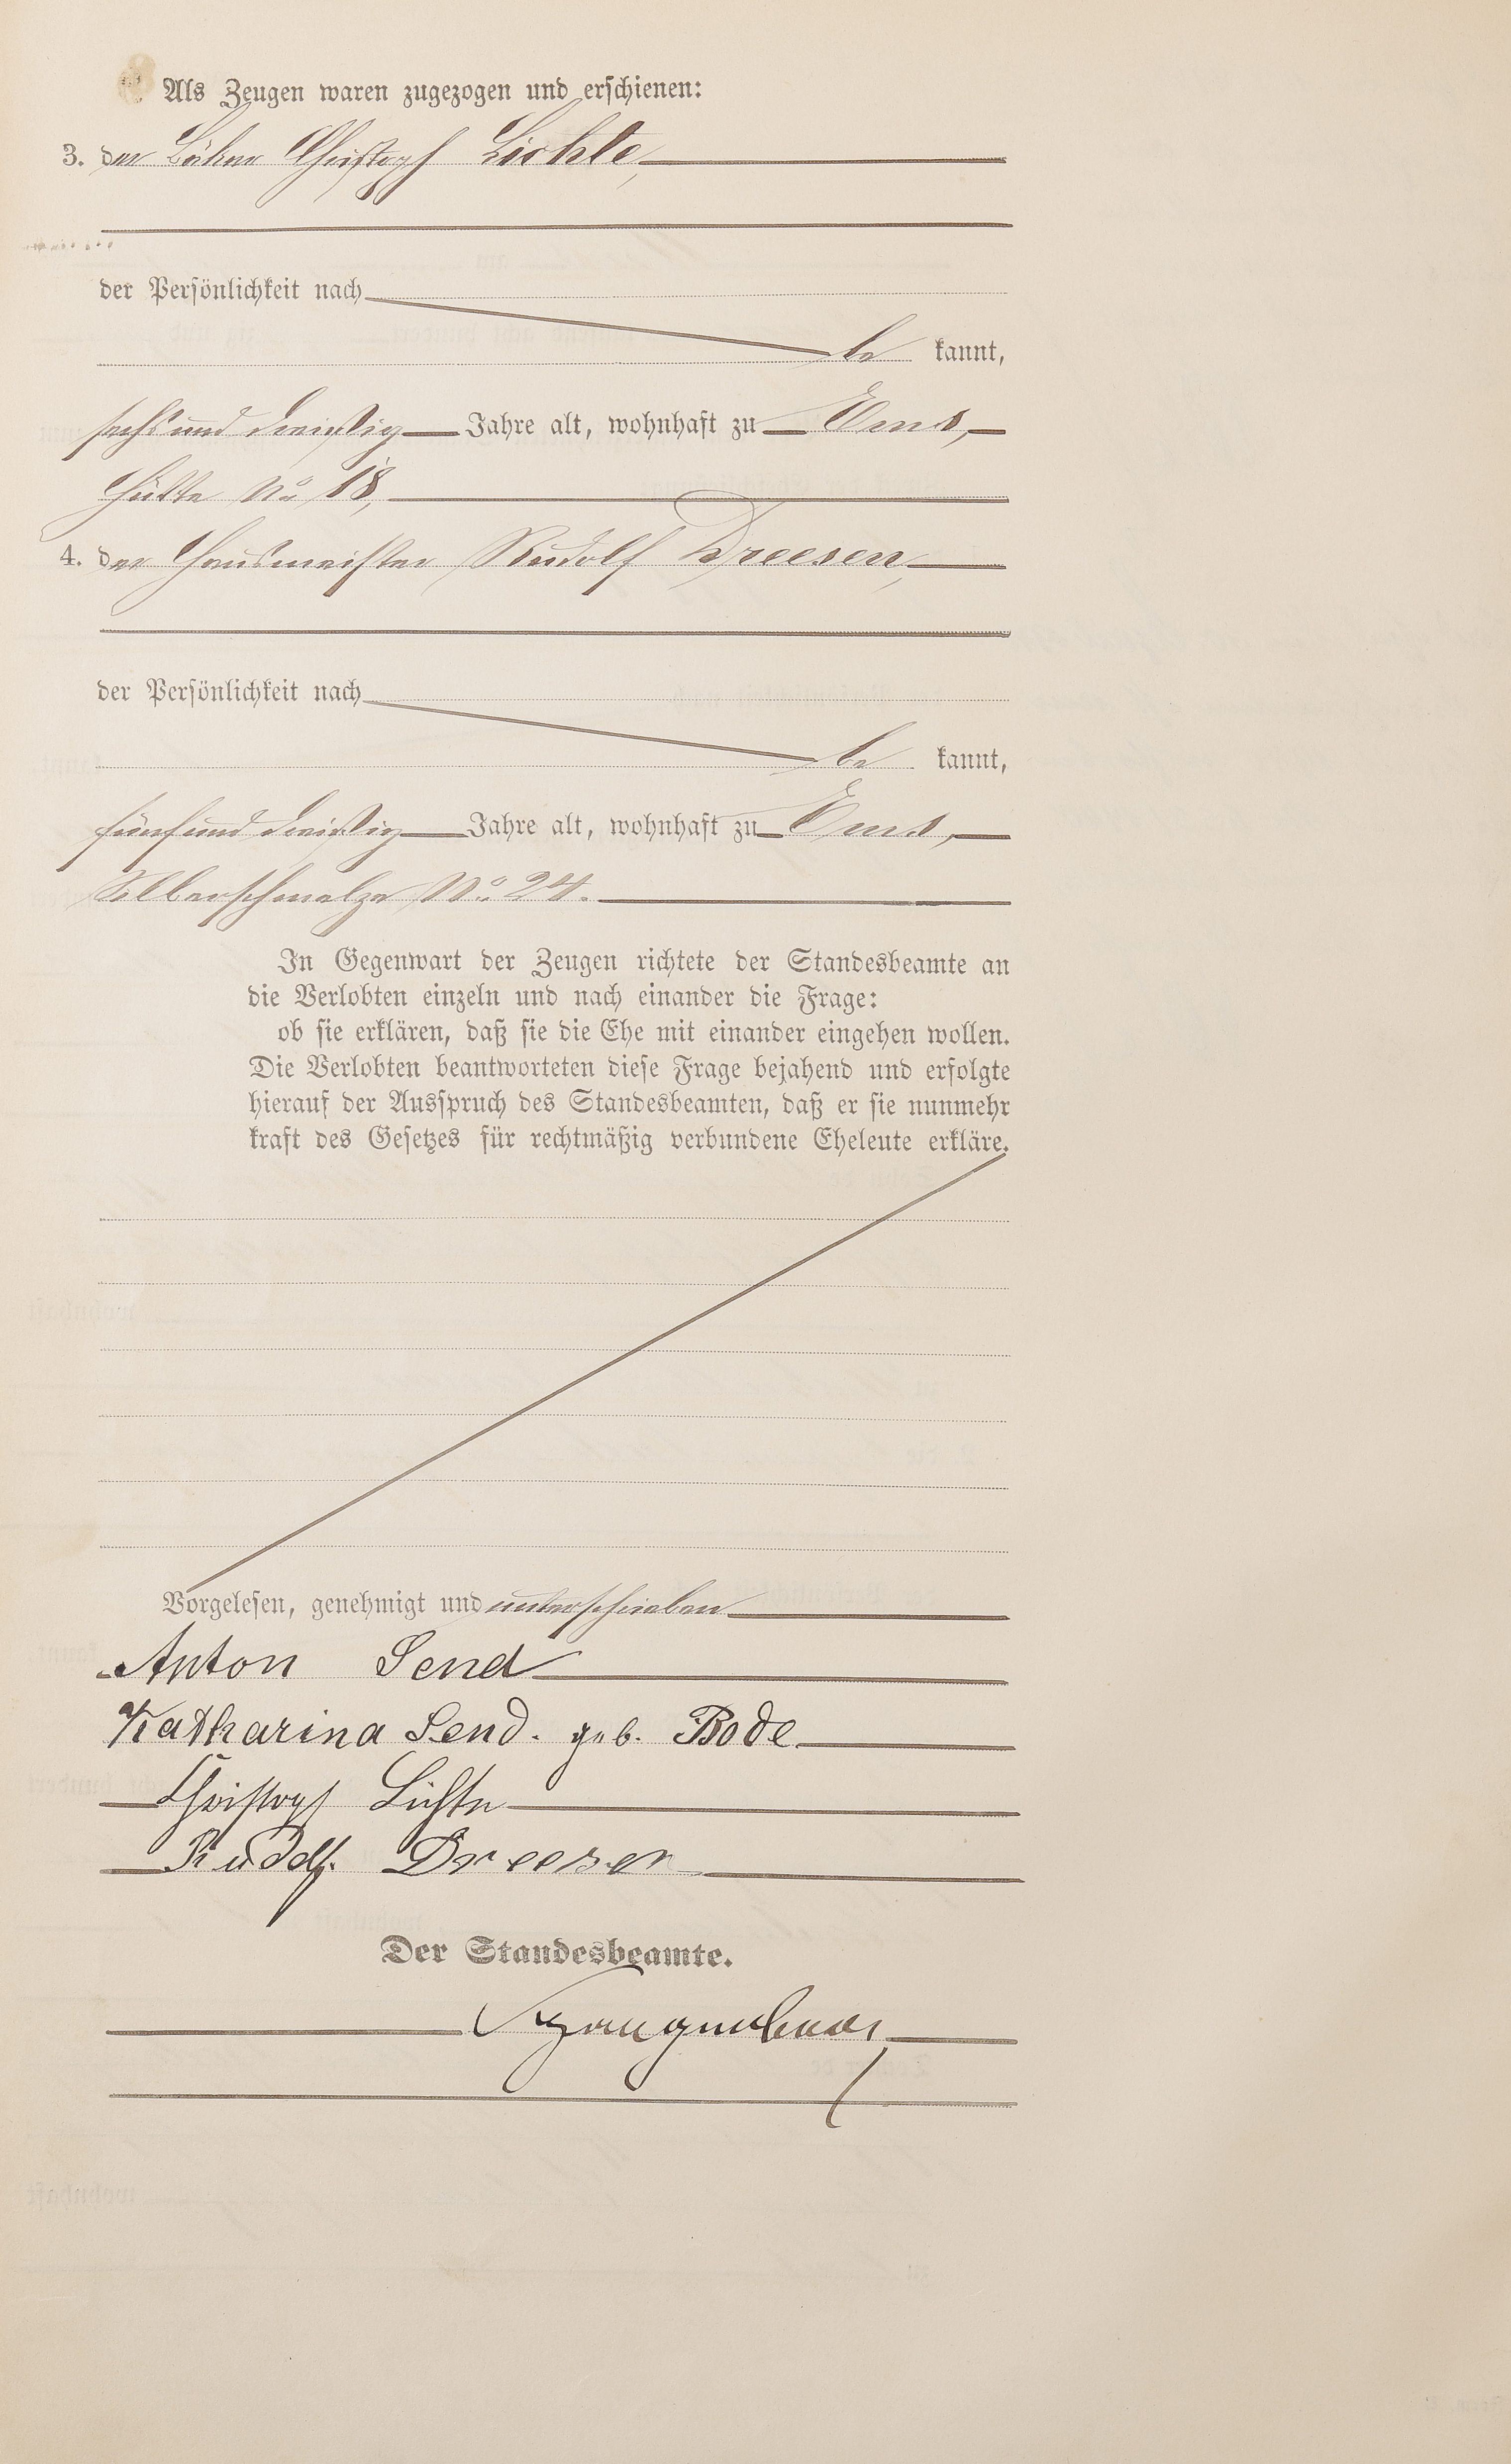 Als Zeugen waren zugezogen und erschienen:
3. der Christoph Lichte,
der Persönlichkeit nach
be kannt,
sechsunddreißig Jahre alt, wohnhaft zu Ems,
Hütte No 18,
4. der Hausmeister Rudolf Dreesen,
der Persönlichkeit nach
be kannt,
fünfunddreißig Jahre alt, wohnhaft zu Ems,
Silberschmelze No. 24.
In Gegenwart der Zeugen richtete der Standesbeamte an
die Verlobten einzeln und nach einander die Frage:
ob sie erklären, daß sie die Ehe mit einander eingehen wollen.
Die Verlobten beantworteten diese Frage bejahend und erfolgte
hierauf der Ausspruch des Standesbeamten, daß er sie nunmehr
kraft des Gesetzes für rechtmäßig verbundene Eheleute erkläre.
Vorgelesen, genehmigt und unterschrieben
Anton Send
Katharina Send. geb. Bode
Christoph Lichte
Rudolf Dreesen
Der Standesbeamte.